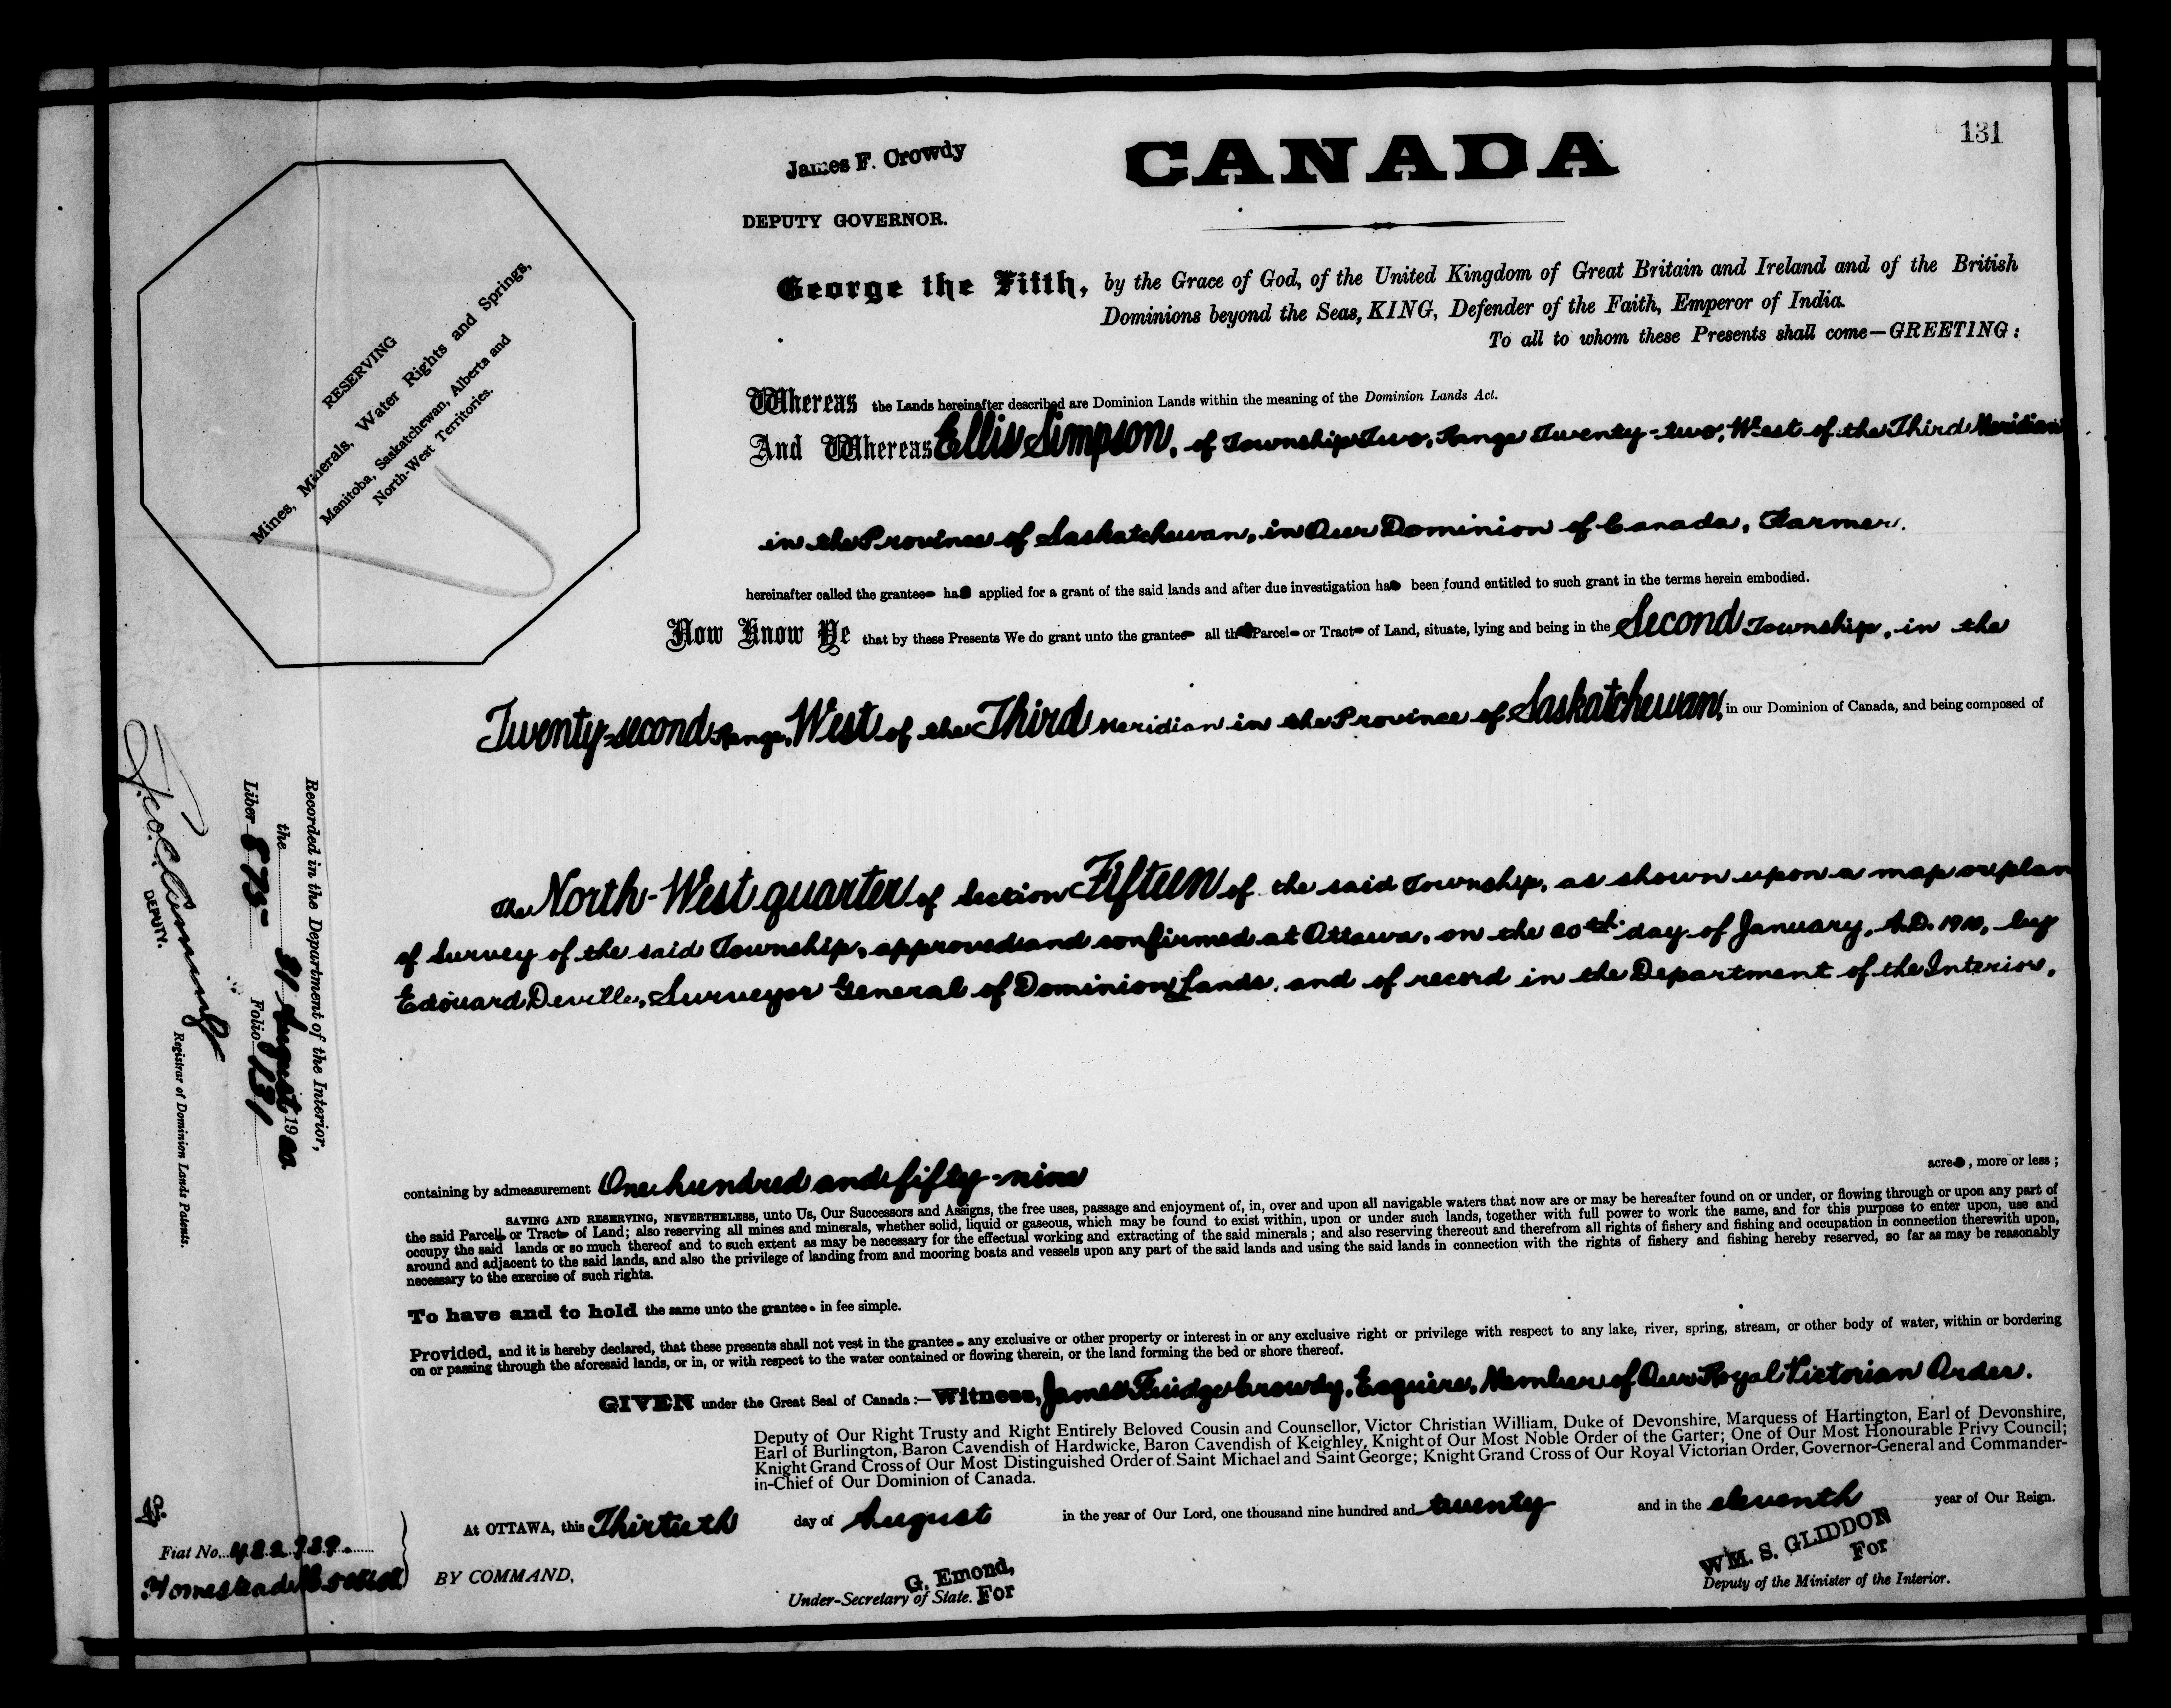 131
James F. Crowdy
CANADA
DEPUTY GOVERNOR.
George the Fifth, by the Grace of God, of the United Kingdom of Great Britain and Ireland and of the British
Dominions beyond the Seas, KING, Defender of the Faith, Emperor of India.
To all to whom these Presents shall come—GREETING:
RESERVING
Mines, Minerals, Water Rights and Springs,
Manitoba, Saskatchewan, Alberta and
North-West Territories.
Whereas the Lands hereinafter described are Dominion Lands within the meaning of the Dominion Lands Act.
And Whereas Ellis Simpson, of Township Two, Range Twenty-two, West of the Third Meridian
in the Province of Saskatchewan, in Our Dominion of Canada, Farmer.
hereinafter called the grantee has applied for a grant of the said lands and after due investigation has been found entitled to such grant in the terms herein embodied.
Now Know Ye that by these Presents We do grant unto the grantee all that Parcel or Tract of Land, situate, lying and being in the Second Township, in the
Twenty-second Range, West of the Third Meridian in the Province of Saskatchewan, in our Dominion of Canada, and being composed of
The North-West quarter of Section Fifteen of the said Township, as shown upon a map or plan
of Survey of the said Township, approved and confirmed at Ottawa, on the 20th day of January, A.D. 1910, by
Edouard Deville, Surveyor General of Dominion Lands, and of record in the Department of the Interior,
containing by admeasurement One hundred and fifty-nine acres, more or less;
SAVING AND RESERVING, NEVERTHELESS, unto Us, Our Successors and Assigns, the free uses, passage and enjoyment of, in, over and upon all navigable waters that now are or may be hereafter found on or under, or flowing through or upon any part of
the said Parcel or Tract of Land; also reserving all mines and minerals, whether solid, liquid or gaseous, which may be found to exist within, upon or under such lands, together with full power to work the same, and for this purpose to enter upon, use and
occupy the said lands or so much thereof and to such extent as may be necessary for the effectual working and extracting of the said minerals; and also reserving thereout and therefrom all rights of fishery and fishing and occupation in connection therewith upon,
around and adjacent to the said lands, and also the privilege of landing from and mooring boats and vessels upon any part of the said lands and using the said lands in connection with the rights of fishery and fishing hereby reserved, so far as may be reasonably
necessary to the exercise of such rights.
To have and to hold the same unto the grantee in fee simple.
Provided, and it is hereby declared, that these presents shall not vest in the grantee any exclusive or other property or interest in or any exclusive right or privilege with respect to any lake, river, spring, stream, or other body of water, within or bordering
on or passing through the aforesaid lands, or in, or with respect to the water contained or flowing therein, or the land forming the bed or shore thereof.
GIVEN under the Great Seal of Canada:—Witness, James Fuidge Crowdy, Esquire, Member of Our Royal Victorian Order.
Deputy of Our Right Trusty and Right Entirely Beloved Cousin and Counsellor, Victor Christian William, Duke of Devonshire, Marquess of Hartington, Earl of Devonshire,
Earl of Burlington, Baron Cavendish of Hardwicke, Baron Cavendish of Keighley, Knight of Our Most Noble Order of the Garter; One of Our Most Honourable Privy Council;
Knight Grand Cross of Our Most Distinguished Order of Saint Michael and Saint George; Knight Grand Cross of Our Royal Victorian Order, Governor-General and Commander-
in-Chief of Our Dominion of Canada.
At OTTAWA, this Thirtieth day of August in the year of Our Lord, one thousand nine hundred and twenty and in the eleventh year of Our Reign.
BY COMMAND,
G. Emond,
Under-Secretary of State. For
WM. S. GLIDDON
For
Deputy of the Minister of the Interior.
Recorded in the Department of the Interior,
the 31 August 1920
Liber 875 Folio 131
DEPUTY.
Registrar of Dominion Lands Patents.
Fiat No.
Homestead